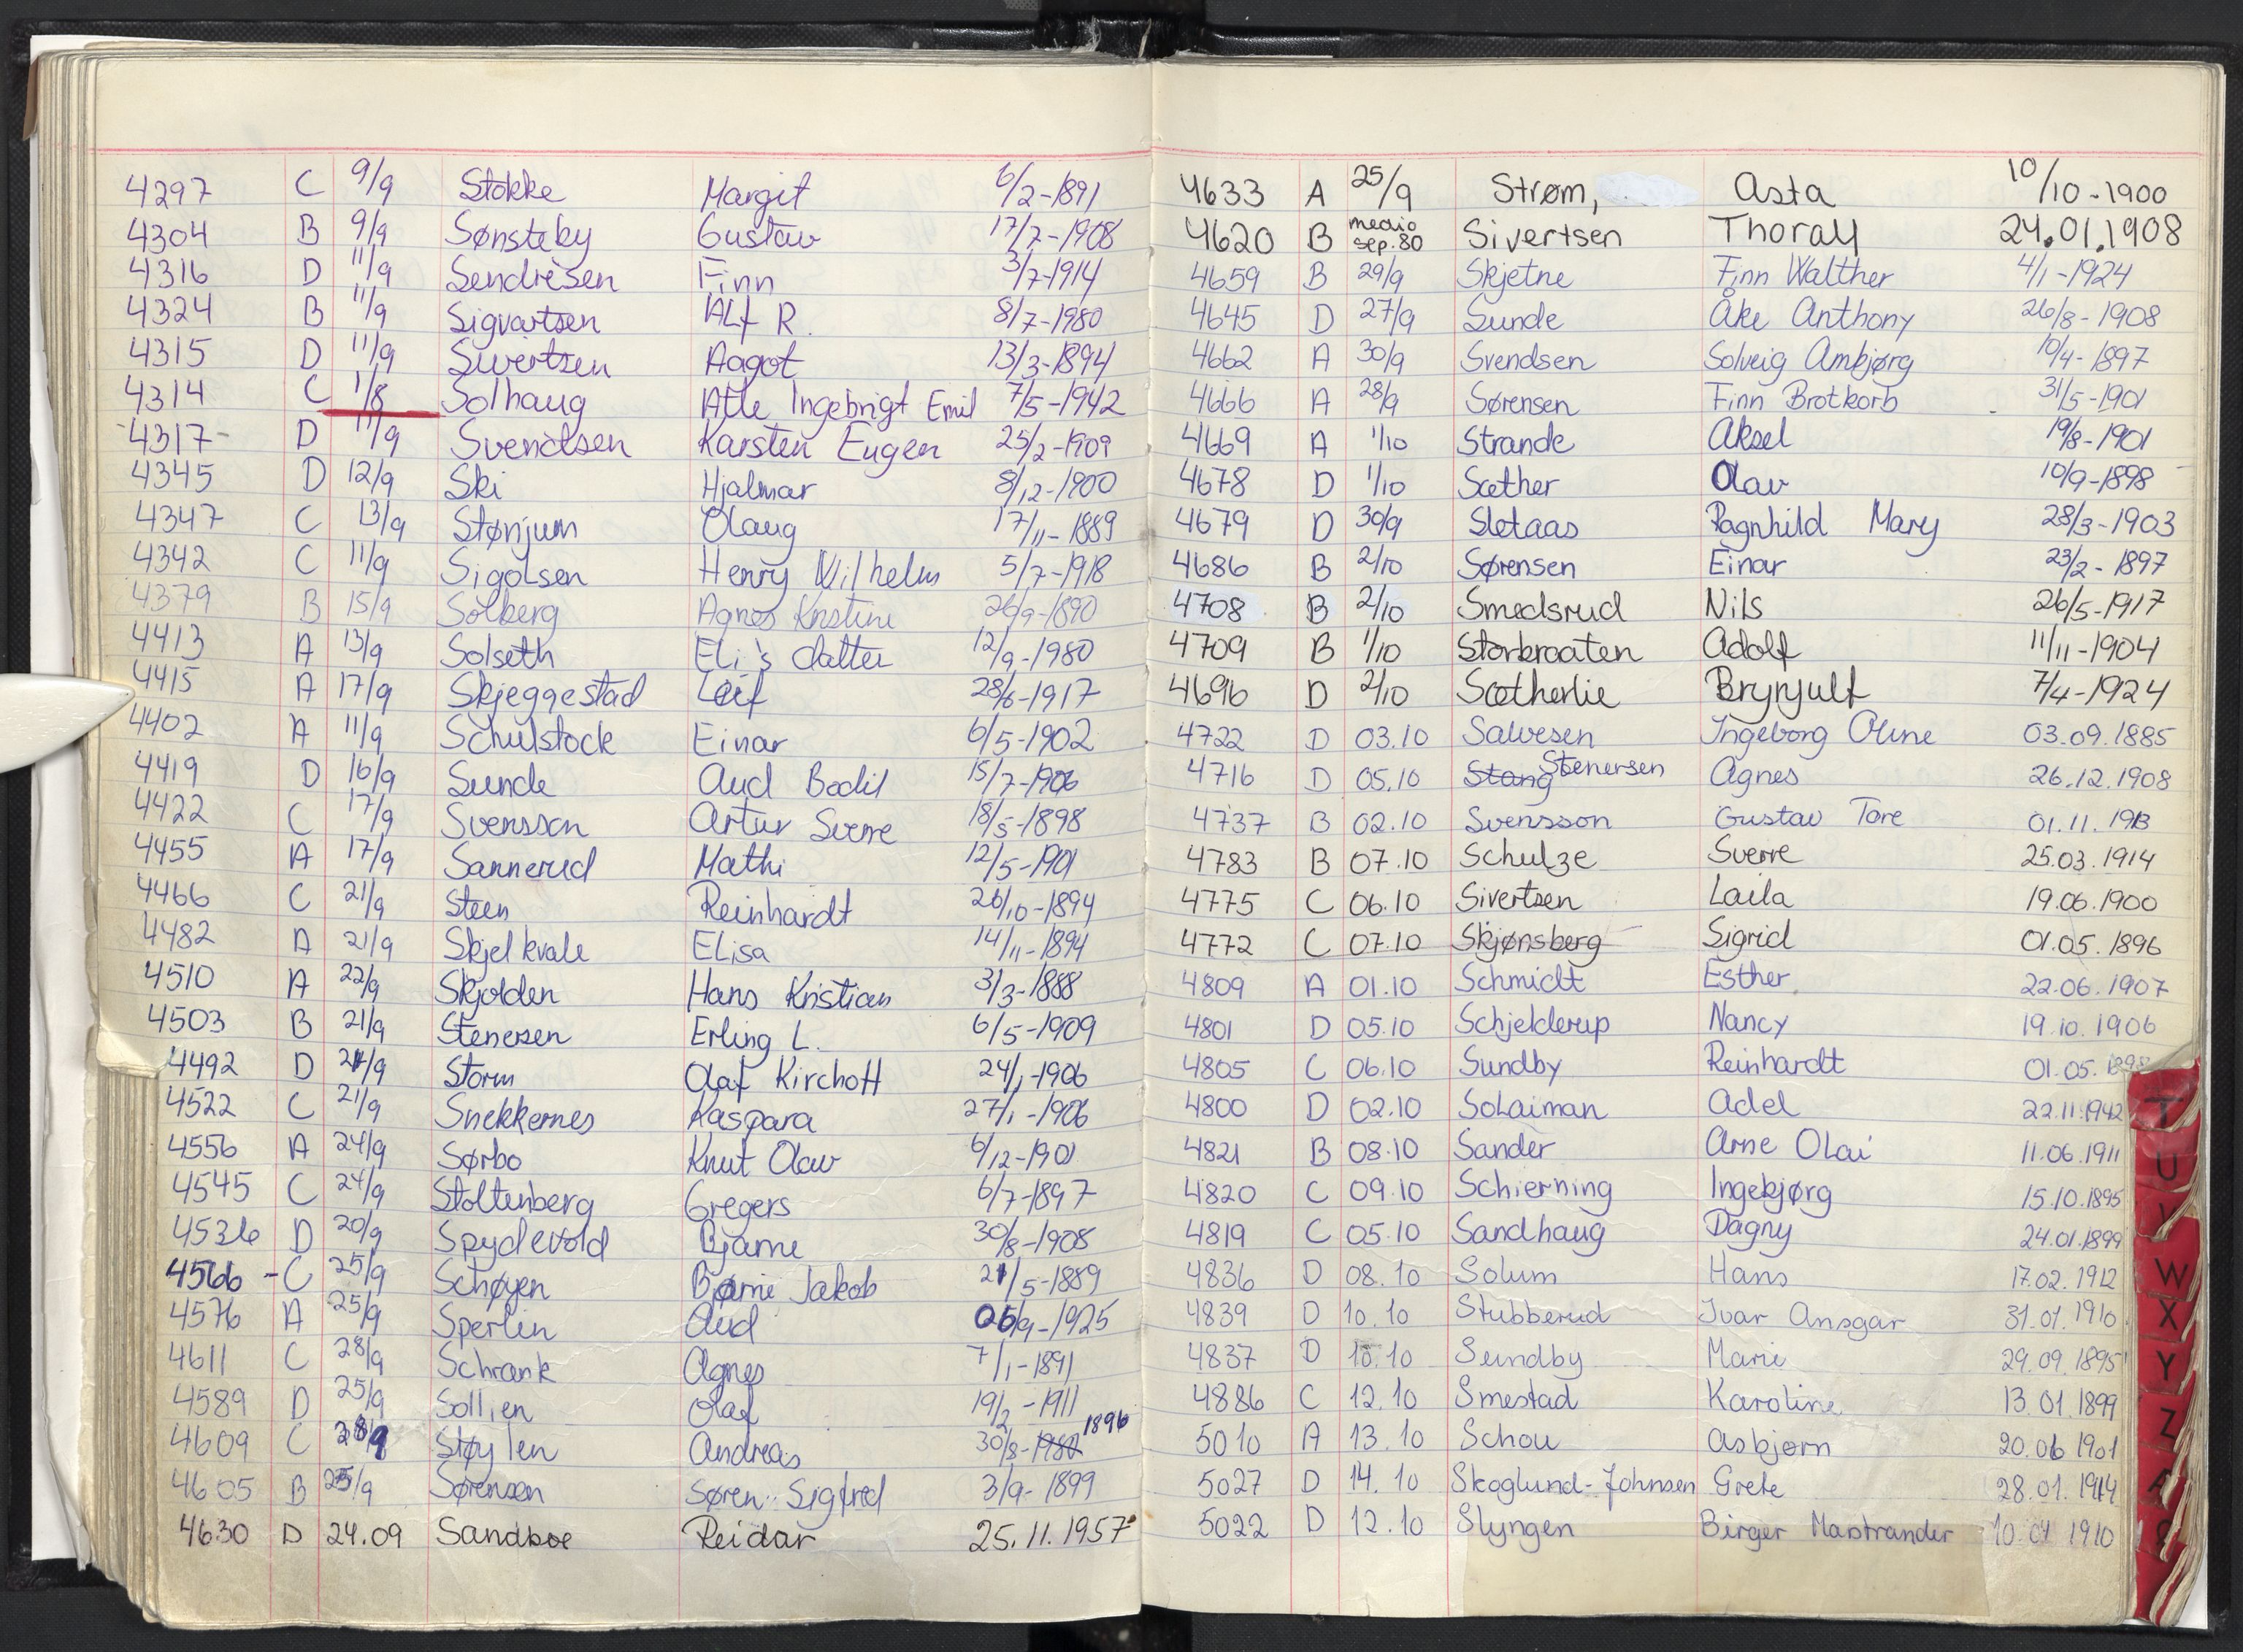 4297 C 9/9 Stokke Margit 6/2-1891
4304 B 9/9 Sønsteby Gustav 17/7-1908
4316 D 11/9 Sendresen Finn 3/7-1914
4324 B 11/9 Sigvartsen Alf R. 8/7-1980
4315 D 11/9 Sivertsen Aagot 13/3-1894
4314 C 1/8 Solhaug Atle Ingebrigt Emil 7/5-1942
4317 D 11/9 Svendsen Karsten Eugen 25/2-1909
4345 D 12/9 Ski Hjalmar 8/12-1900
4347 C 13/9 Stønjum Olaug 17/11-1889
4342 C 11/9 Sigolsen Henry Wilhelm 5/7-1918
4379 B 15/9 Solberg Agnes Kristine 26/9-1890
4413 A 13/9 Solseth Eli's datter 12/9-1980
4415 A 17/9 Skjeggestad Leif 28/6-1917
4402 A 11/9 Schulstock Einar 6/5-1902
4419 D 16/9 Sunde Aud Bodil 15/7-1906
4422 C 17/9 Svensson Artur Sverre 18/5-1898
4455 A 17/9 Sannerud Mathi 12/5-1901
4466 C 21/9 Steen Reinhardt 26/10-1894
4482 A 21/9 Skjelkvale Elisa 14/11-1894
4510 A 22/9 Skjolden Hans Kristian 3/3-1888
4503 B 21/9 Stenersen Erling L. 6/5-1909
4492 D 21/9 Storm Olaf Kirchoff 24/1-1906
4522 C 21/9 Snekkernes Kaspara 27/1-1906
4556 A 24/9 Sørbo Knut Olav 6/12-1901
4545 C 24/9 Stoltenberg Gregers 6/7-1897
4536 D 20/9 Spydevold Bjarne 30/8-1908
4566 - C 25/9 Schøyen Bjarne Jakob 21/5-1889
4576 A 25/9 Sperlin Aud 06/9-1925
4611 C 28/9 Schrank Agnes 7/1-1891
4589 D 25/9 Sollien Olaf 19/2-1911
4609 C 28/9 Støylen Andreas 30/8-1980 1896
4605 B 25/9 Sørensen Søren Sigfred 3/9-1899
4630 D 24.09 Sandboe Reidar 25.11.1957
4633 A 25/9 Strøm, Asta 10/10-1900
4620 B medio sep.80 Sivertsen Thoralf 24.01.1908
4659 B 29/9 Skjetne Finn Walther 4/1-1924
4645 D 27/9 Sunde Åke Anthony 26/8-1908
4662 A 30/9 Svendsen Solveig Ambjørg 10/4-1897
4666 A 28/9 Sørensen Finn Brotkorb 31/5-1901
4669 A 1/10 Strande Aksel 19/8-1901
4678 D 1/10 Sæther Olav 10/9-1898
4679 D 30/9 Sletaas Ragnhild Mary 28/3-1903
4686 B 2/10 Sørensen Einar 23/2-1897
4708 B 2/10 Smedsrud Nils 26/5-1917
4709 B 1/10 Storbraaten Adolf 11/11-1904
4696 D 2/10 Sætherlie Brynjulf 7/4-1924
4722 D 03.10 Salvesen Ingeborg Oline 03.09.1885
4716 D 05.10 Stang Stenersen Agnes 26.12.1908
4737 B 02.10 Svensson Gustav Tore 01.11.1913
4783 B 07.10 Schulze Sverre 25.03.1914
4775 C 06.10 Sivertsen Laila 19.06.1900
4772 C 07.10 Skjønsberg Sigrid 01.05.1896
4809 A 01.10 Schmidt Esther 22.06.1907
4801 D 05.10 Schjelderup Nancy 19.10.1906
4805 C 06.10 Sundby Reinhardt 01.05.
4800 D 02.10 Solaiman Adel 22.11.1942
4821 B 08.10 Sander Arne Olai 11.06.1911
4820 C 09.10 Schierning Ingebjørg 15.10.1895
4819 C 05.10 Sandhaug Dagny 24.01.1899
4836 D 08.10 Solum Hans 17.02.1912
4839 D 10.10 Stubberud Ivar Ansgar 31.01.1910
4837 D 10.10 Sundby Marie 29.09.1895
4886 C 12.10 Smestad Karoline 13.01.1899
5010 A 13.10 Schou Asbjørn 20.06.1901
5027 D 14.10 Skoglund-Johnsen Grete 28.01.1914
5022 D 12.10 Slyngen Birger Mastrander 10.04.1910
T
U
V
W
X
Y
Z